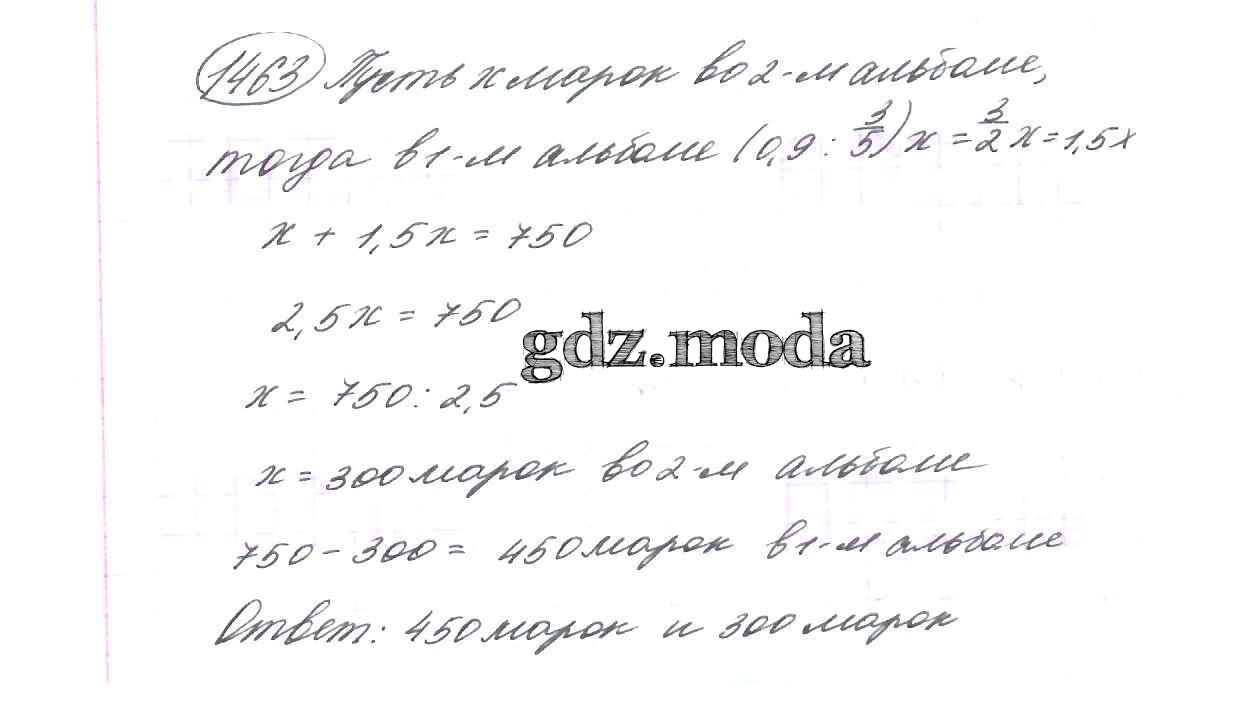 1463 Пусть x марок во 2-м альбоме,
тогда в 1-м альбоме (0,9 : 3/5) x = 3/2 x = 1,5x
x + 1,5x = 750
2,5x = 750
gdz.moda
x = 750 : 2,5
x = 300 марок во 2-м альбоме
750 - 300 = 450 марок в 1-м альбоме
Ответ: 450 марок и 300 марок